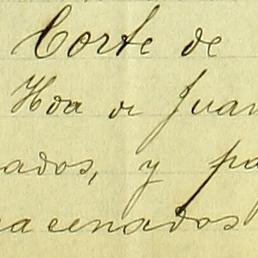 Corte de
Hda de Juan
ados, y pa
acenados